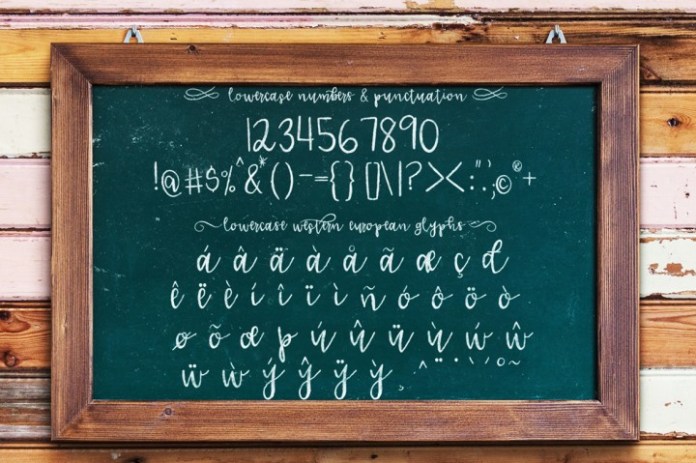 lowercase numbers & punctuation
1234567890
!@#$%^&*()-={}[]\|?><:".';©®+
lowercase western european glyphs
á â ä à å ã æ ç đ
ê ë è í î ï ì ñ ó ô ö ò
ø õ œ þ ú û ü ù ẃ ŵ
ẅ ẁ ý ŷ ÿ ỳ ¸ ^ ¨ ˙ ` ´ ° ~